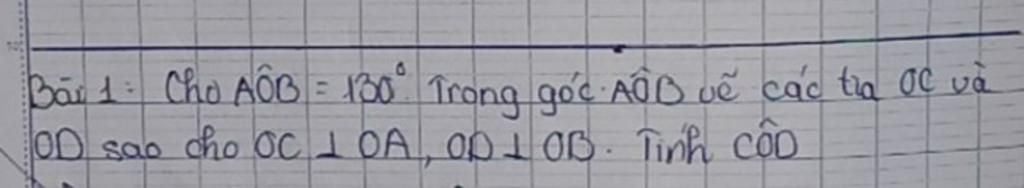 Bài 1: Cho AÔB = 130° Trong góc AÔB vẽ các tia OC và
OD sao cho OC ⊥ OA, OD ⊥ OB. Tính CÔD